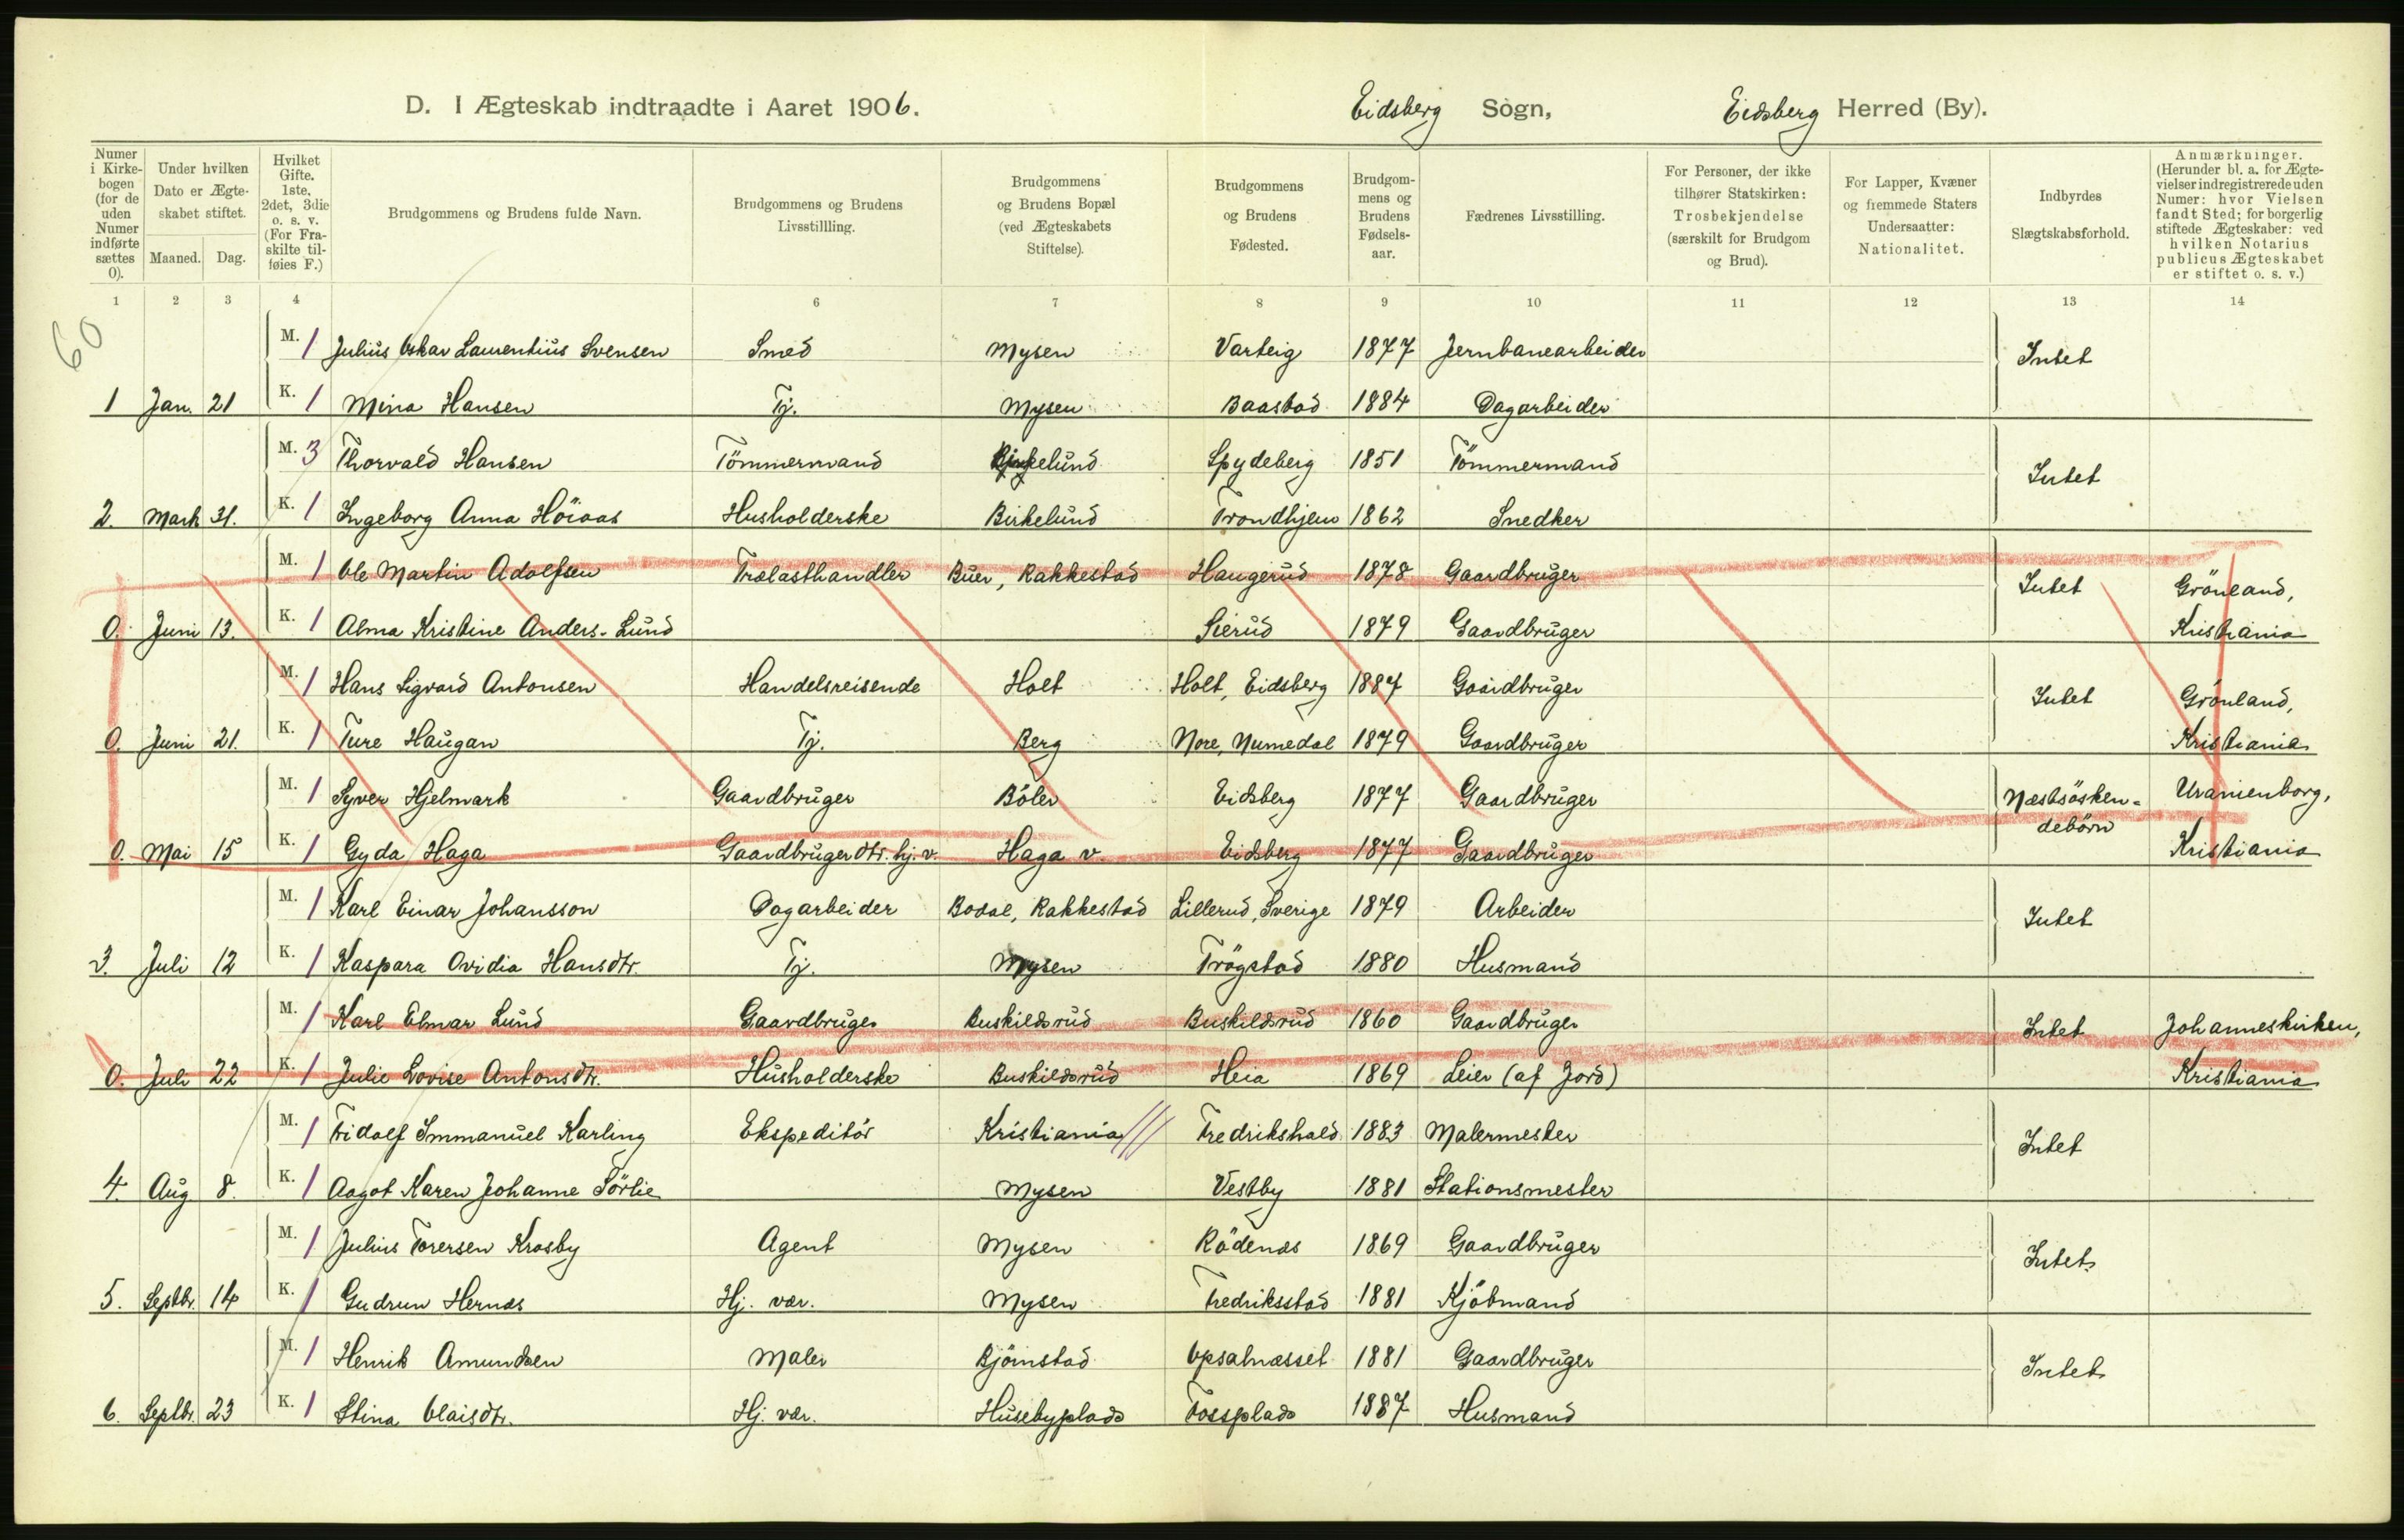 D. I Ægteskab indtraadte i Aaret 1906. Eidsberg Sogn, Eidsberg Herred (By).
Numer i Kirkebogen (for de uden Numer indførte sættes 0).
Under hvilken Dato er Ægteskabet stiftet.
Maaned. Dag.
Hvilket Gifte. 1ste, 2det, 3die o. s. v. (For Fraskilte tilføies F.)
Brudgommens og Brudens fulde Navn.
Brudgommens og Brudens Livsstillling.
Brudgommens og Brudens Bopæl (ved Ægteskabets Stiftelse).
Brudgommens og Brudens Fødested.
Brudgommens og Brudens Fødselsaar.
Fædrenes Livsstilling.
For Personer, der ikke tilhører Statskirken: Trosbekjendelse (særskilt for Brudgom og Brud).
For Lapper, Kvæner og fremmede Staters Undersaatter: Nationalitet.
Indbyrdes Slægtskabsforhold.
Anmærkninger. (Herunder bl. a. for Ægtevielser indregistrerede uden Numer: hvor Vielsen fandt Sted; for borgerlig stiftede Ægteskaber: ved hvilken Notarius publicus Ægteskabet er stiftet o. s. v.)
1 2 3 4 6 7 8 9 10 11 12 13 14
60
M. 1 Julius Oskar Laurentius Svensen Smed Mysen Varteig 1877 Jernbanearbeider Intet
1 Jan. 21 K. 1 Mina Hansen Tj. Mysen Baastad 1884 Dagarbeider
M. 3 Thorvald Hansen Tömmermand Spydeberg 1851 Tömmermand Intet
2. Marts 31. K. 1 Ingeborg Anna Höiaas Husholderske Birkelund Trondhjem 1862 Snedker
M. 1 Ole Martin Adolfsen Trælasthandler Buer, Rakkestad Haugerud 1878 Gaardbruger Intet Grönland,
0. Juni 13. K. 1 Alma Kristine Anders. Lund Sierud 1879 Gaardbruger Kristiania
M. 1 Hans Sigvard Antonsen Handelsreisende Holt Holt, Eidsberg 1887 Gaardbruger Intet Grönland,
0. Juni 21. K. 1 Ture Haugan Tj. Berg Nore, Numedal 1879 Gaardbruger Kristiania
M. 1 Syver Hjelmark Gaardbruger Böler Eidsberg 1877 Gaardbruger Næstsösken- Uranienborg,
debörn
0. Mai 15 K. 1 Gyda Haga Gaardbrugerdtr. hj. v. Haga v. Eidsberg 1877 Gaardbruger Kristiania
M. 1 Karl Einar Johansson Dagarbeider Bodal, Rakkestad Lillerud, Sverige 1879 Arbeider Intet
3. Juli 12 K. 1 Kaspara Ovidia Hansdtr. Tj. Mysen Trögstad 1880 Husmand
M. 1 Karl Elmar Lund Gaardbruger Buskildsrud Buskildsrud 1860 Gaardbruger Intet Johanneskirken,
0. Juli 22 K. 1 Julie Lovise Antonsdtr. Husholderske Buskildsrud Heia 1869 Leier (af Jord) Kristiania
M. 1 Fridolf Immanuel Karling Ekspeditör Kristiania Fredrikshald 1883 Malermester Intet
4. Aug 8. K. 1 Aagot Karen Johanne Sörlie Mysen Vestby 1881 Stationsmester
M. 1 Julius Torersen Krosby Agent Mysen Rödenes 1869 Gaardbruger Intet
5. Septbr. 14 K. 1 Gudrun Hernæs Hj. vær. Mysen Fredriksstad 1881 Kjöbmand
M. 1 Henrik Amundsen Maler Björnstad Opsalnæsset 1881 Gaardbruger Intet
6. Septbr. 23 K. 1 Stina Olaisdtr. Hj. vær. Husebyplads Fossplads 1887 Husmand